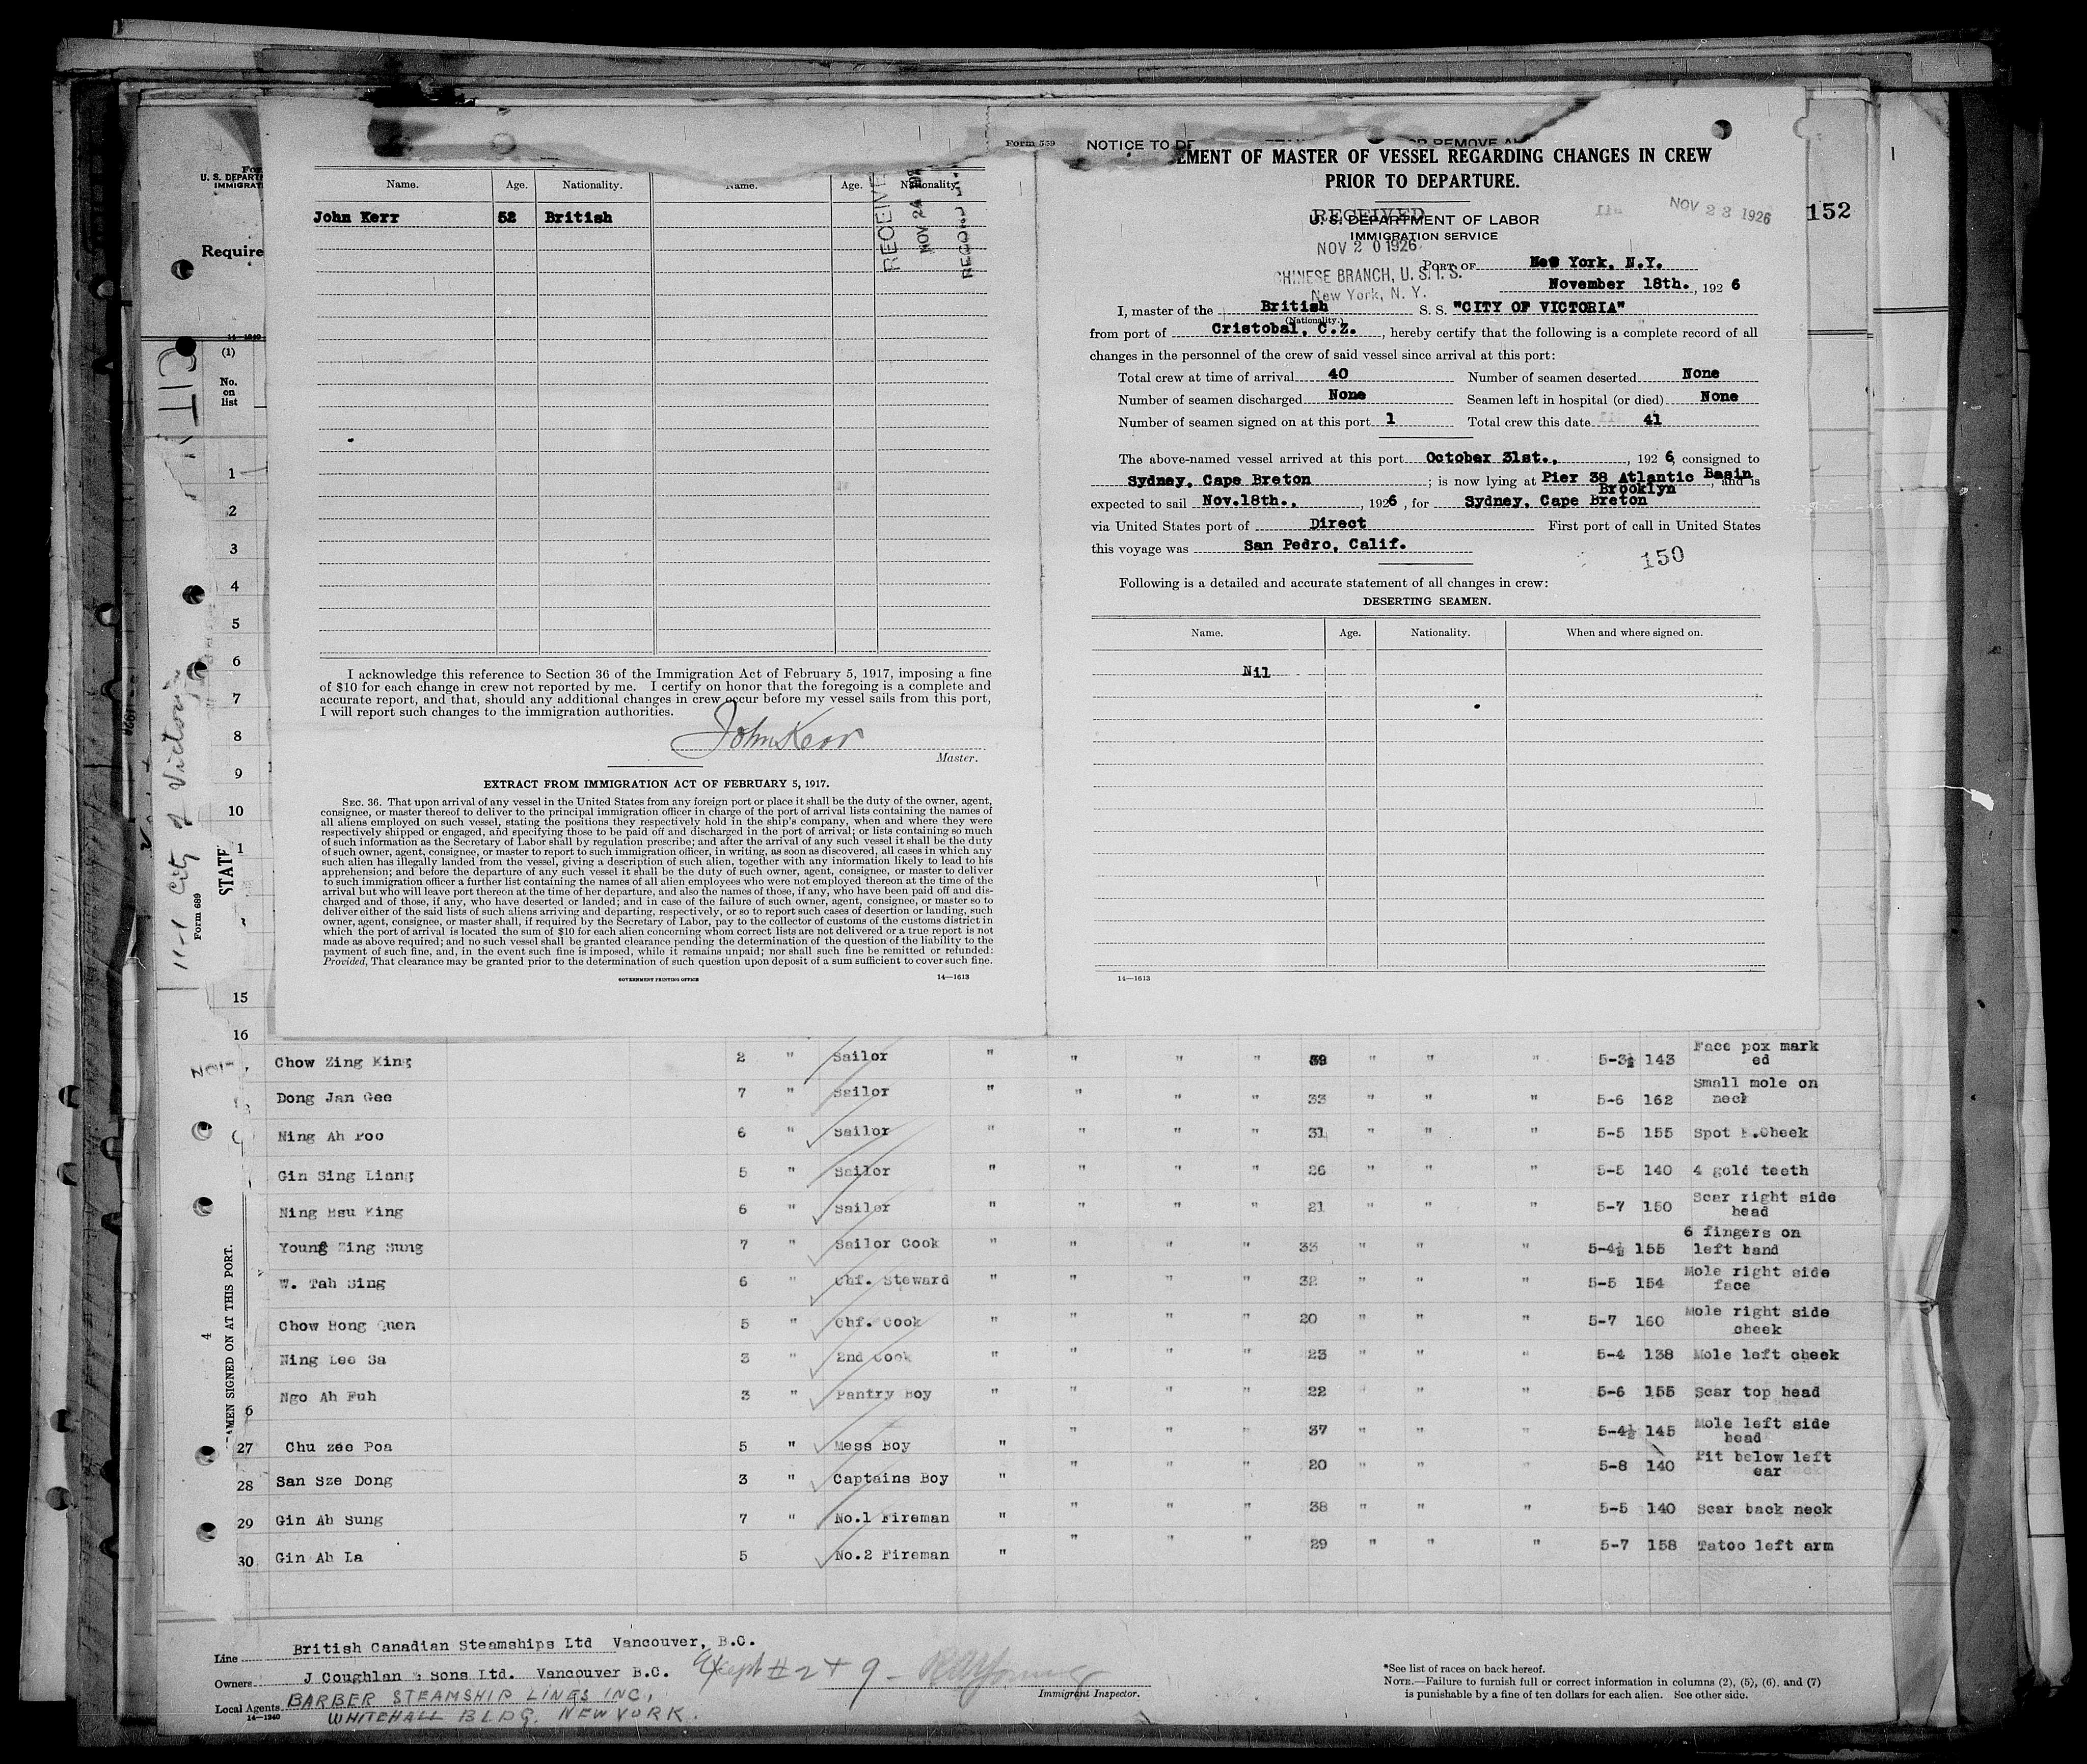 Form 559
NOTICE TO DE
OR REMOVE
EMENT OF MASTER OF VESSEL REGARDING CHANGES IN CREW
PRIOR TO DEPARTURE.
RECEIVED
U. S. DEPARTMENT OF LABOR
IMMIGRATION SERVICE
NOV 23 1926
152
NOV 20 1926
CHINESE BRANCH, U. S. I. S.
New York, N. Y.
PORT OF New York, N.Y.
November 18th., 1926
I, master of the British S. S. "CITY OF VICTORIA"
(Nationality.)
from port of Cristobal, C.Z., hereby certify that the following is a complete record of all
changes in the personnel of the crew of said vessel since arrival at this port:
Total crew at time of arrival 40 Number of seamen deserted None
Number of seamen discharged None Seamen left in hospital (or died) None
Number of seamen signed on at this port 1 Total crew this date 41
The above-named vessel arrived at this port October 31st., 1926, consigned to
Sydney, Cape Breton; is now lying at Pier 38 Atlantic Basin, and is
Brooklyn
expected to sail Nov.18th., 1926, for Sydney, Cape Breton
via United States port of Direct First port of call in United States
this voyage was San Pedro, Calif.
150
Following is a detailed and accurate statement of all changes in crew:
DESERTING SEAMEN.
Name. Age. Nationality. When and where signed on.
Nil
14—1613
U. S. DEPART
IMMIGRAT
Require
(1)
No.
on
list
Name. Age. Nationality. Name. Age. Nationality.
John Kerr 52 British
RECEIVE
NOV 24
RECORD
I acknowledge this reference to Section 36 of the Immigration Act of February 5, 1917, imposing a fine
of $10 for each change in crew not reported by me. I certify on honor that the foregoing is a complete and
accurate report, and that, should any additional changes in crew occur before my vessel sails from this port,
I will report such changes to the immigration authorities.
John Kerr
Master.
EXTRACT FROM IMMIGRATION ACT OF FEBRUARY 5, 1917.
SEC. 36. That upon arrival of any vessel in the United States from any foreign port or place it shall be the duty of the owner, agent,
consignee, or master thereof to deliver to the principal immigration officer in charge of the port of arrival lists containing the names of
all aliens employed on such vessel, stating the positions they respectively hold in the ship's company, when and where they were
respectively shipped or engaged, and specifying those to be paid off and discharged in the port of arrival; or lists containing so much
of such information as the Secretary of Labor shall by regulation prescribe; and after the arrival of any such vessel it shall be the duty
of such owner, agent, consignee, or master to report to such immigration officer, in writing, as soon as discovered, all cases in which any
such alien has illegally landed from the vessel, giving a description of such alien, together with any information likely to lead to his
apprehension; and before the departure of any such vessel it shall be the duty of such owner, agent, consignee, or master to deliver
to such immigration officer a further list containing the names of all alien employees who were not employed thereon at the time of the
arrival but who will leave port thereon at the time of her departure, and also the names of those, if any, who have been paid off and dis-
charged and of those, if any, who have deserted or landed; and in case of the failure of such owner, agent, consignee, or master so to
deliver either of the said lists of such aliens arriving and departing, respectively, or so to report such cases of desertion or landing, such
owner, agent, consignee, or master shall, if required by the Secretary of Labor, pay to the collector of customs of the customs district in
which the port of arrival is located the sum of $10 for each alien concerning whom correct lists are not delivered or a true report is not
made as above required; and no such vessel shall be granted clearance pending the determination of the question of the liability to the
payment of such fine, and, in the event such fine is imposed, while it remains unpaid; nor shall such fine be remitted or refunded:
Provided, That clearance may be granted prior to the determination of such question upon deposit of a sum sufficient to cover such fine.
GOVERNMENT PRINTING OFFICE
14—1613
1
2
3
4
5
6
7
8
9
10
1
15
16
11-1 City of Victoria
Form 689
STATE
AMEN SIGNED ON AT THIS PORT.
4
Chow Zing King 2 " Sailor " " " " 39 " " " 5-3½ 143 Face pox mark
ed
Dong Jan Gee 7 " Sailor " " " " 33 " " " 5-6 162 Small mole on
neck
Ning Ah Poo 6 " Sailor " " " " 31 " " " 5-5 155 Spot R.Cheek
Gin Sing Liang 5 " Sailor " " " " 26 " " " 5-5 140 4 gold teeth
Ning Hsu King 6 " Sailor " " " " 21 " " " 5-7 150 Scar right side
head
Young Zing Sung 7 " Sailor Cook " " " " 33 " " " 5-4½ 155 6 fingers on
left hand
W. Tah Sing 6 " Chf. Steward " " " " 32 " " " 5-5 154 Mole right side
face
Chow Hong Quen 5 " Chf. Cook " " " " 20 " " " 5-7 160 Mole right side
cheek
Ning Lee Sa 3 " 2nd Cook " " " " 23 " " " 5-4 138 Mole left cheek
Ngo Ah Fuh 3 " Pantry Boy " " " " 22 " " " 5-6 155 Scar top head
6
27 Chu zee Poa 5 " Mess Boy " " " " 37 " " " 5-4½ 145 Mole left side
head
28 San Sze Dong 3 " Captains Boy " " " " 20 " " " 5-8 140 Pit below left
ear
29 Gin Ah Sung 7 " No.1 Fireman " " " " 38 " " " 5-5 140 Scar back neck
30 Gin Ah La 5 " No.2 Fireman " " " " 29 " " " 5-7 158 Tatoo left arm
Line British Canadian Steamships Ltd Vancouver, B.C.
Owners J Coughlan & Sons Ltd. Vancouver B.C.
Except #2 + 9 -
Immigrant Inspector.
Local Agents BARBER STEAMSHIP LINES INC,
WHITEHALL BLDG. NEW YORK.
14—1240
*See list of races on back hereof.
NOTE.—Failure to furnish full or correct information in columns (2), (5), (6), and (7)
is punishable by a fine of ten dollars for each alien. See other side.